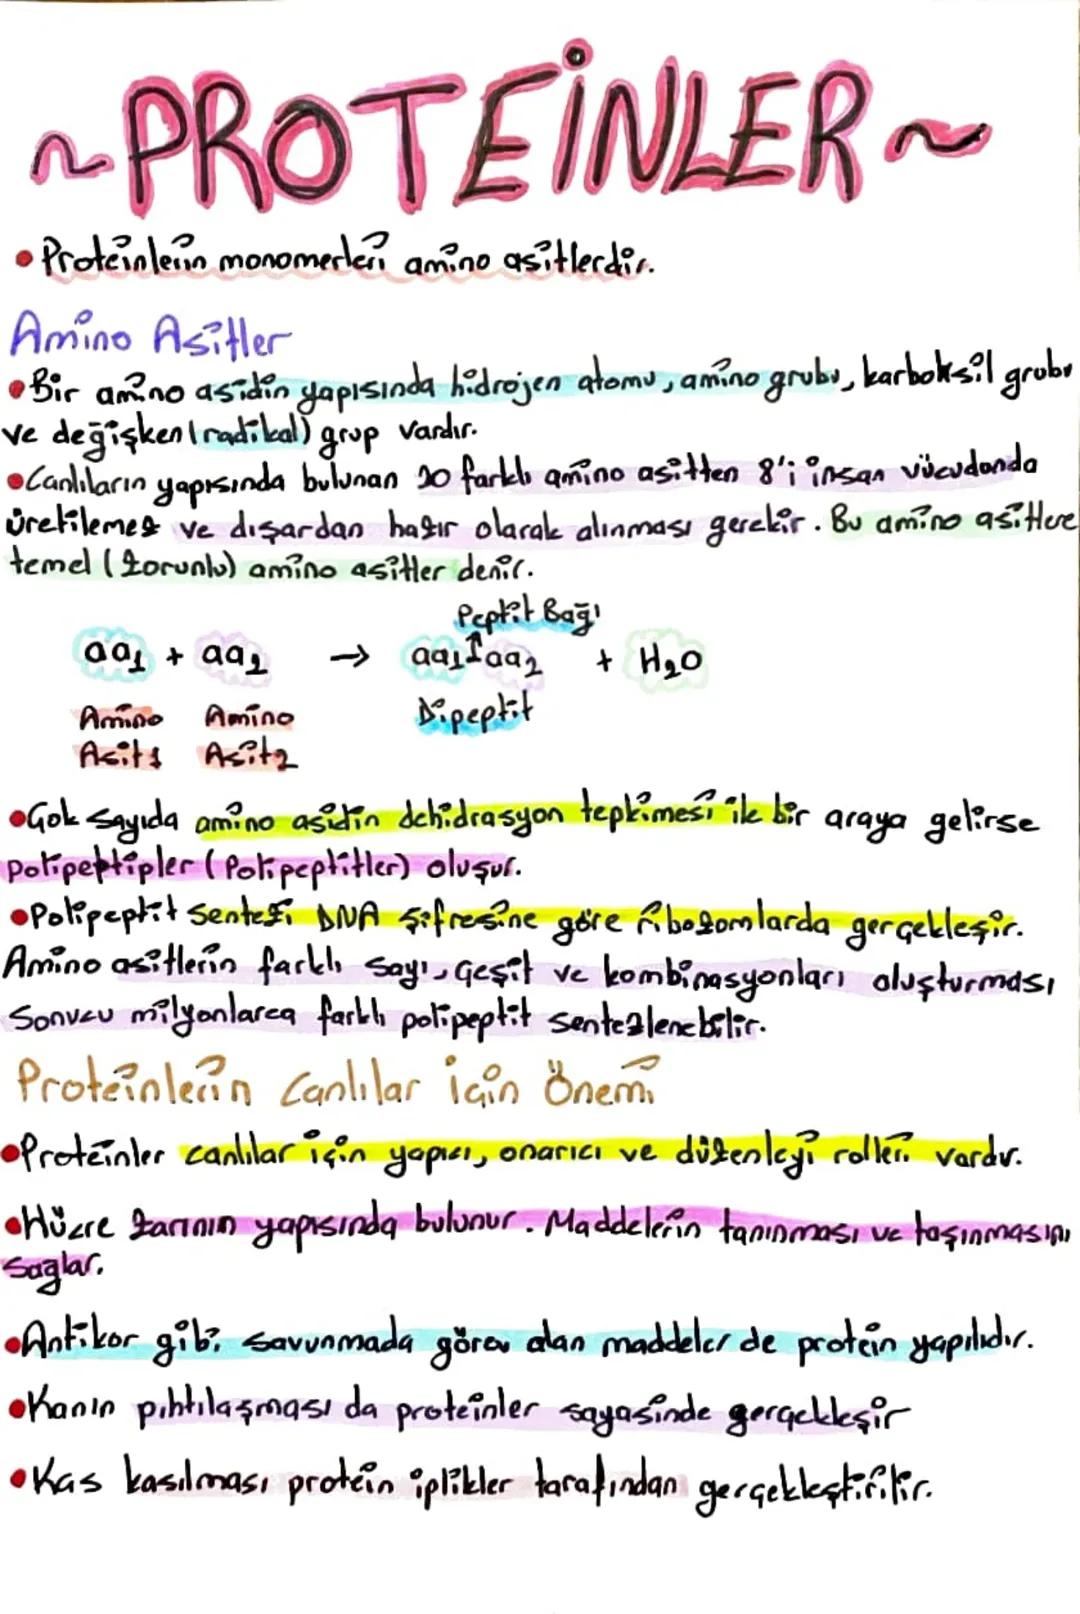 ~PROTEİNLER~
• Proteinlerin monomerleri amino asitlerdir.
Amino Asitler
• Bir amino asidin yapısında hidrojen atomu, amino grubu, karboksil grubu
ve değişken (radikal) grup vardır.
• Canlıların yapısında bulunan 20 farklı amino asitten 8'i insan vücudunda
üretilemez ve dışardan hazır olarak alınması gerekir. Bu amino asitlere
temel (zorunlu) amino asitler denir.
Peptit Bağı
aa₁ + aa₂ → aa₁↑aa₂ + H₂O
Amino Amino Dipeptit
Asit1 Asit2
• Çok sayıda amino asidin dehidrasyon tepkimesi ile bir araya gelirse
polipeptipler (Polipeptitler) oluşur.
• Polipeptit sentezi DNA şifresine göre ribozomlarda gerçekleşir.
Amino asitlerin farklı sayı, çeşit ve kombinasyonları oluşturması
sonucu milyonlarca farklı polipeptit sentezlenebilir.
Proteinlerin Canlılar için Önemi
• Proteinler canlılar için yapıcı, onarıcı ve düzenleyi rolleri vardır.
• Hücre zarının yapısında bulunur. Maddelerin tanınması ve taşınmasını
sağlar.
• Antikor gibi savunmada görev alan maddeler de protein yapılıdır.
• Kanın pıhtılaşması da proteinler sayasinde gerçekleşir
• Kas kasılması protein iplikler tarafından gerçekleştirilir.